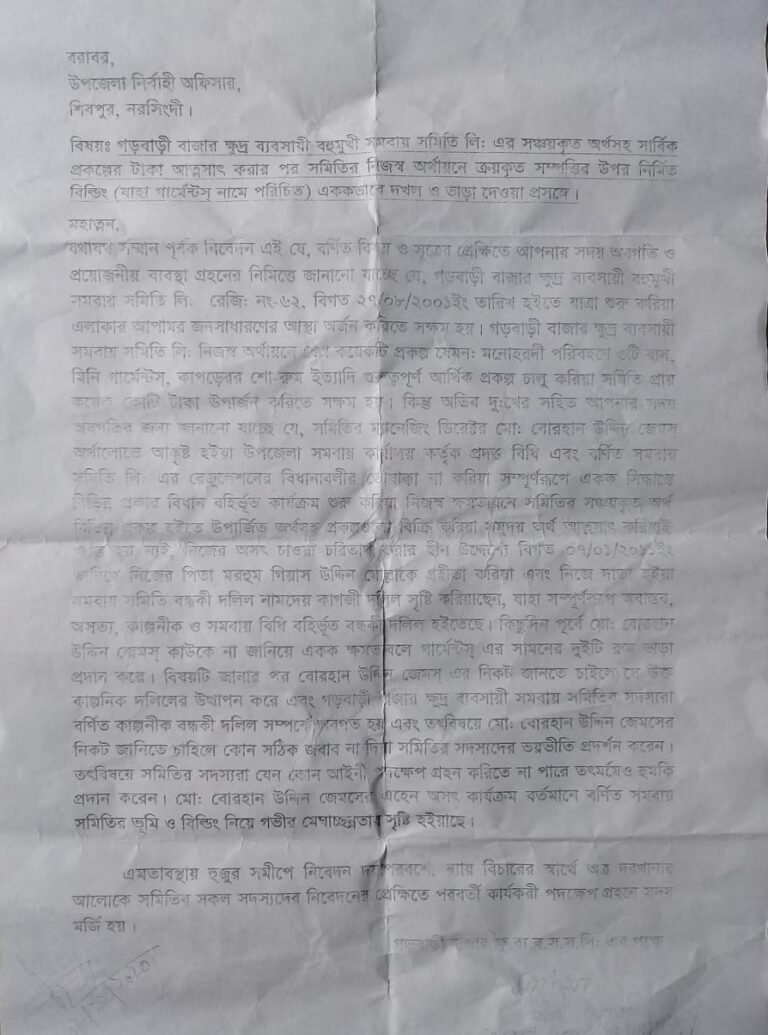 বরাবর,
উপজেলা নির্বাহী অফিসার,
শিবপুর, নরসিংদী।
বিষয়ঃ গড়বাড়ী বাজার ক্ষুদ্র ব্যবসায়ী বহুমুখী সমবায় সমিতি লি: এর সঞ্চয়কৃত অর্থসহ সার্বিক
প্রকল্পের টাকা আত্নসাৎ করার পর সমিতির নিজস্ব অর্থায়নে ক্রয়কৃত সম্পত্তির উপর নির্মিত
বিল্ডিং (যাহা গার্মেন্টস্ নামে পরিচিত) এককভাবে দখল ও ভাড়া দেওয়া প্রসঙ্গে।
মহাত্নন,
যথাযথ সম্মান পূর্বক নিবেদন এই যে, বর্ণিত বিষয় ও সূত্রের প্রেক্ষিতে আপনার সদয় অবগতি ও
প্রয়োজনীয় ব্যবস্থা গ্রহনের নিমিত্তে জানানো যাচ্ছে যে, গড়বাড়ী বাজার ক্ষুদ্র ব্যবসায়ী বহুমুখী
সমবায় সমিতি লি: রেজি: নং-৬২, বিগত ২৭/০৮/২০০১ইং তারিখ হইতে যাত্রা শুরু করিয়া
এলাকার আপামর জনসাধারণের আস্থা অর্জন করিতে সক্ষম হয়। গড়বাড়ী বাজার ক্ষুদ্র ব্যবসায়ী
সমবায় সমিতি লি: নিজস্ব অর্থায়নে বেশ কয়েকটি প্রকল্প যেমন: মনোহরদী পরিবহণে ৩টি বাস,
মিনি গার্মেন্টস্, কাপড়ের শো-রুম ইত্যাদি গুরুত্বপূর্ণ আর্থিক প্রকল্প চালু করিয়া সমিতি প্রায়
কয়েক কোটি টাকা উপার্জন করিতে সক্ষম হয়। কিন্তু অতিব দু:খের সহিত আপনার সদয়
অবগতির জন্য জানানো যাচ্ছে যে, সমিতির ম্যানেজিং ডিরেক্টর মো: বোরহান উদ্দিন জেমস
অর্থালোভে আকৃষ্ট হইয়া উপজেলা সমবায় কার্যালয় কর্তৃক প্রদত্ত বিধি এবং বর্ণিত সমবায়
সমিতি লি: এর রেজুলেশনের বিধানাবলীর তোয়াক্কা না করিয়া সম্পূর্ণরূপে একক সিদ্ধান্তে
বিভিন্ন প্রকার বিধান বহির্ভূত কার্যক্রম শুরু করিয়া নিজস্ব ক্ষমতায়নে সমিতির সঞ্চয়কৃত অর্থ
বিভিন্ন প্রকল্প হইতে উপার্জিত অর্থসহ বিক্রি করিয়া সমুদয় অর্থ আত্নসাৎ করিয়াই
ক্ষান্ত হয় নাই, নিজের অসৎ চাওয়া চরিতার্থ করার হীন উদ্দেশ্যে বিগত ০৭/০১/২০১১ইং
তারিখে নিজের পিতা মরহুম গিয়াস উদ্দিন মোল্লাকে গ্রহীতা করিয়া এবং নিজে দাতা হইয়া
সমবায় সমিতি বন্ধকী দলিল নামদেয় কাগজী দলিল সৃষ্টি করিয়াছেন, যাহা সম্পূর্ণরূপে অবান্তর,
অসত্য, কাল্পনীক ও সমবায় বিধি বহির্ভূত বন্ধকী দলিল হইতেছে। কিছুদিন পূর্বে মো: বোরহান
উদ্দিন জেমস্ কাউকে না জানিয়ে একক ক্ষমতাবলে গার্মেন্টস্ এর সামনের দুইটি রুম ভাড়া
প্রদান করে। বিষয়টি জানার পর বোরহান উদ্দিন জেমস্ এর নিকট জানতে চাইলে সে উক্ত
কাল্পনিক দলিলের উত্থাপন করে এবং গড়বাড়ী বাজার ক্ষুদ্র ব্যবসায়ী সমবায় সমিতির সদস্যরা
বর্ণিত কাল্পনীক বন্ধকী দলিল সম্পর্কে অবগত হয় এবং তৎবিষয়ে মো: বোরহান উদ্দিন জেমসের
নিকট জানিতে চাহিলে কোন সঠিক জবাব না দিয়া সমিতির সদস্যদের ভয়ভীতি প্রদর্শন করেন।
তৎবিষয়ে সমিতির সদস্যরা যেন কোন আইনী পদক্ষেপ গ্রহন করিতে না পারে তৎমর্মেও হুমকি
প্রদান করেন। মো: বোরহান উদ্দিন জেমসের এহেন অসৎ কার্যক্রম বর্তমানে বর্ণিত সমবায়
সমিতির ভূমি ও বিল্ডিং নিয়ে গভীর মেঘাচ্ছন্নতার সৃষ্টি হইয়াছে।
এমতাবস্থায় হুজুর সমীপে নিবেদন ন্যায় বিচারের স্বার্থে অত্র দরখাস্তের
আলোকে সমিতির সকল সদস্যদের নিবেদনের প্রেক্ষিতে পরবর্তী কার্যকরী পদক্ষেপ গ্রহনে
মর্জি হয়।
গড়বাড়ী বাজার ক্ষু ব্য ব স স লি: এর পক্ষে